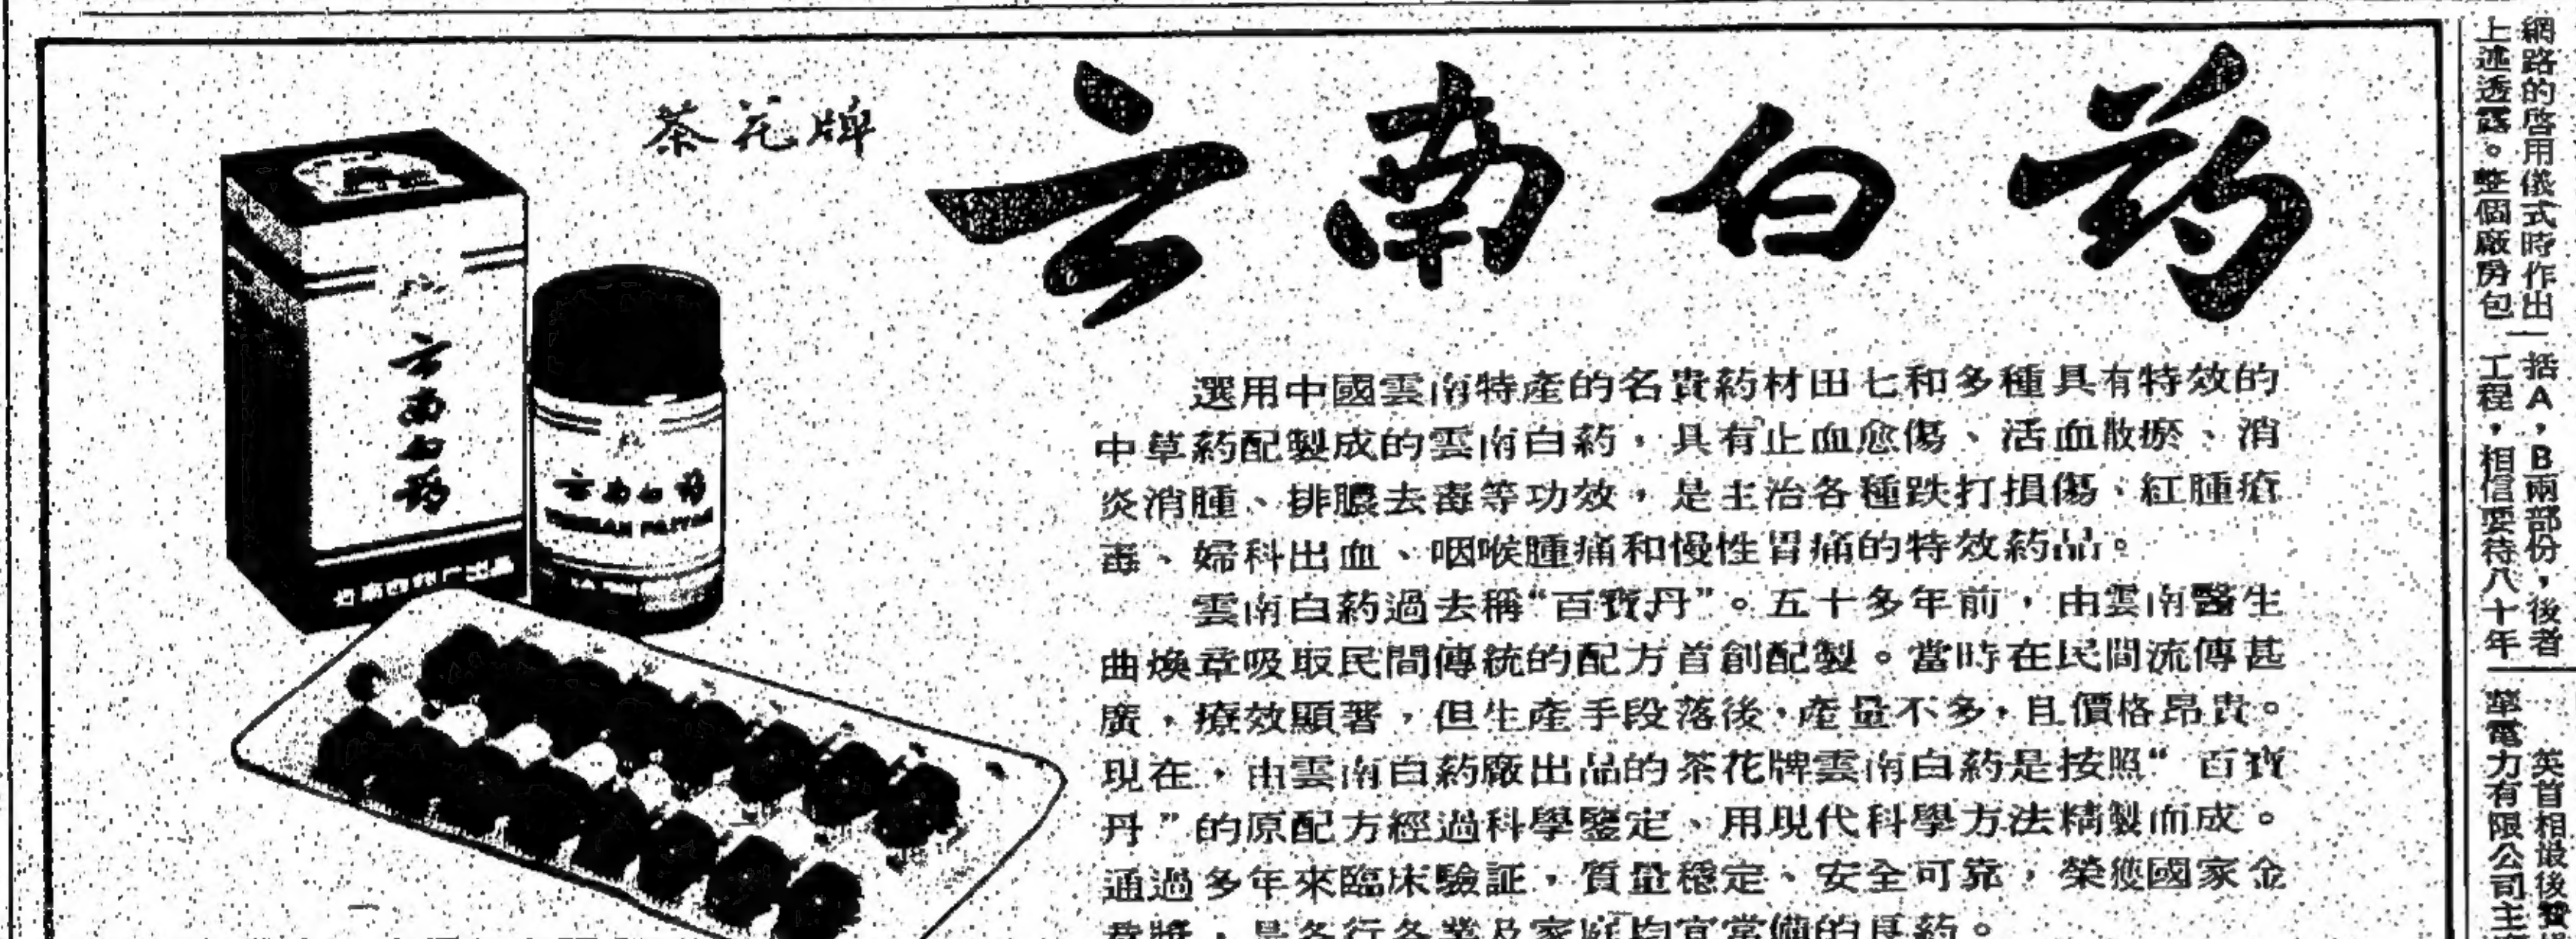 茶花牌
云南白药
選用中國雲南特產的名貴葯材田七和多種具有特效的
中草葯配製成的雲南白葯，具有止血愈傷、活血散瘀、消
炎消腫、排膿去毒等功效，是主治各種跌打損傷、紅腫瘡
毒、婦科出血、咽喉腫痛和慢性胃痛的特效葯品。
雲南白葯過去稱“百寶丹”。五十多年前，由雲南醫生
曲煥章吸取民間傳統的配方首創配製。當時在民間流傳甚
廣，療效顯著，但生產手段落後，產量不多，且價格昂貴。
現在，由雲南白葯廠出品的茶花牌雲南白葯是按照“百寶
丹”的原配方經過科學鑒定、用現代科學方法精製而成。
通過多年來臨床驗証，質量穩定、安全可靠，榮獲國家金
是各行各業及家庭均宜常備的良葯。
云南白药
云南白药
網路的啓用儀式時作出
上述透露。整個廠房包
括A，B兩部份，後者
工程，相信要待八十年
英首相最後
華電力有限公司主